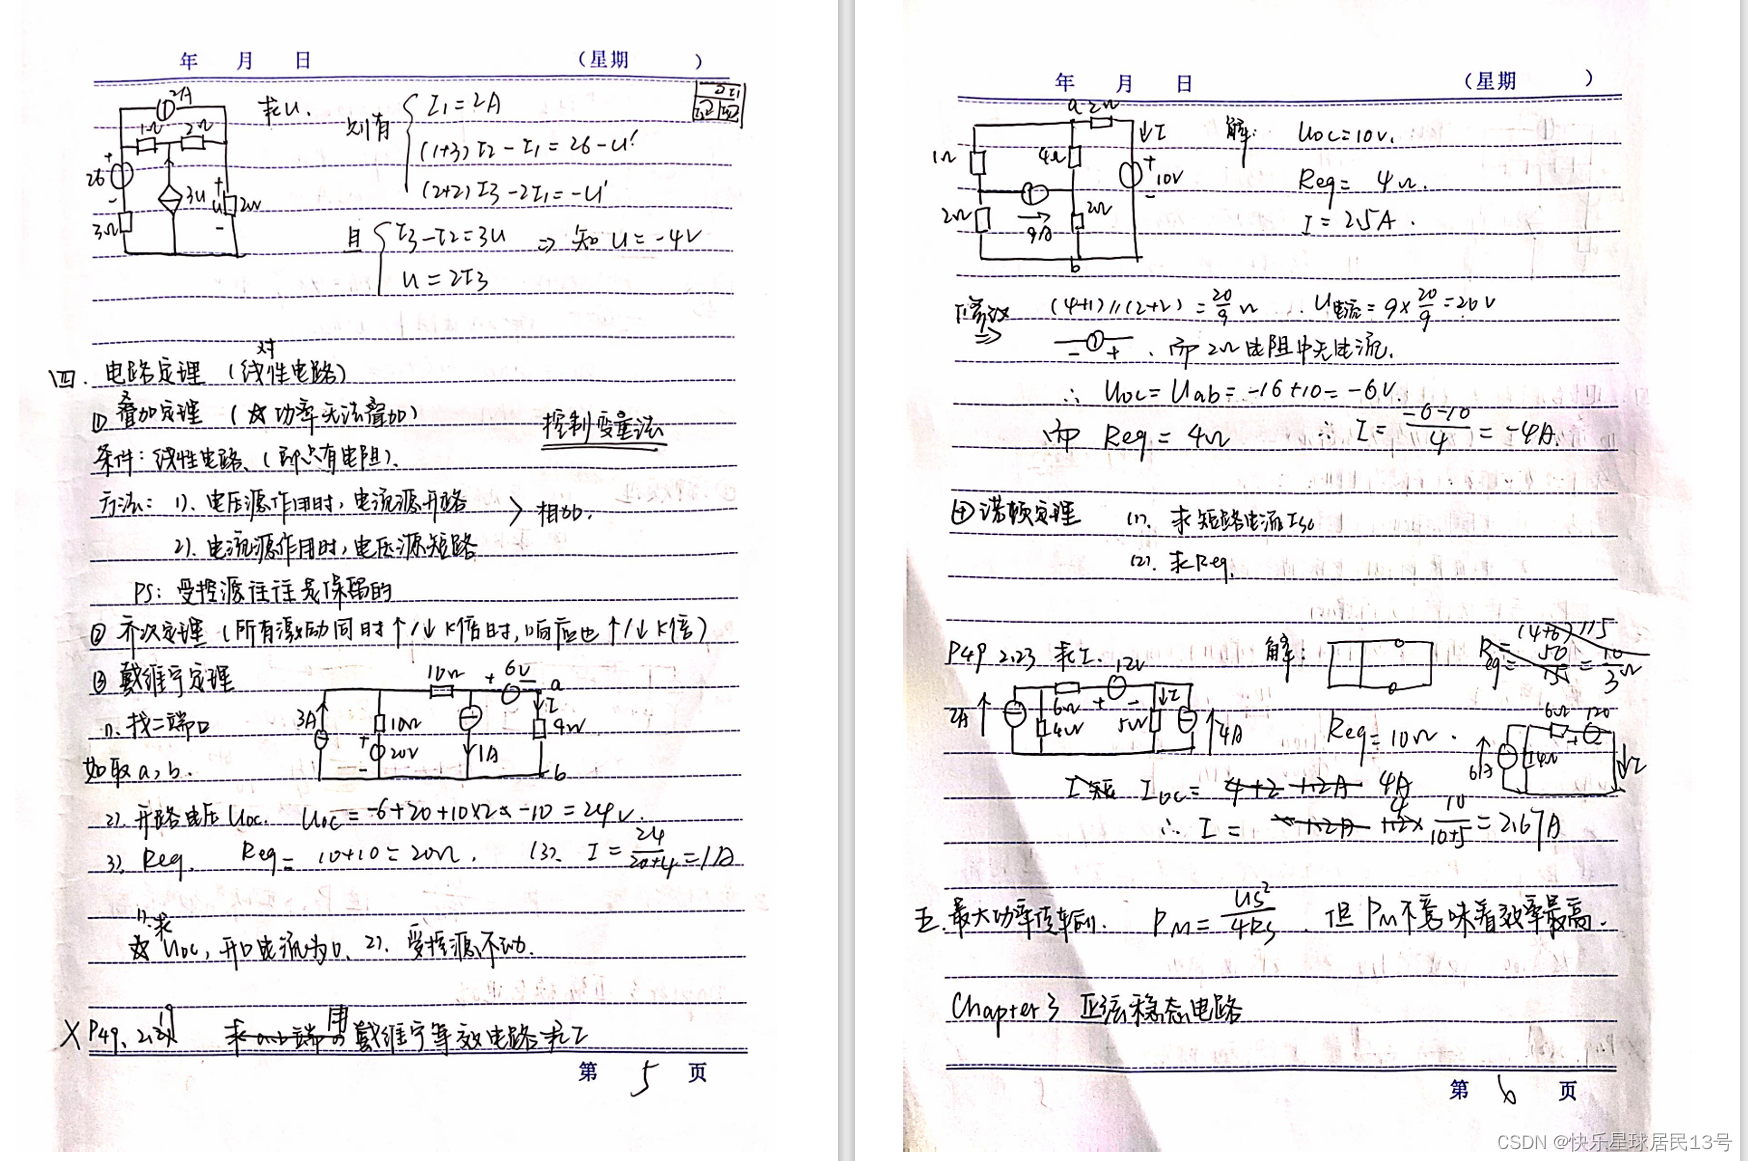 年 月 日 (星期 )
2A
1Ω 2Ω
26
3U
2Ω
3Ω
求U.
则有
I1=2A
(1+3)I2-I1=26-U'
(2+2)I3-2I1=-U'
且
I3-I2=3U ⇒ 知 U=-4V
U=2I3
四. 电路定理 (对线性电路)
① 叠加定理 (☆功率无法叠加)
控制变量法
条件: 线性电路、(即只有电阻).
方法: 1). 电压源作用时, 电流源开路
2). 电流源作用时, 电压源短路
相加.
PS: 受控源往往是保留的
② 齐次定理 (所有激励同时↑/↓K倍时, 响应也↑/↓K倍)
③ 戴维宁定理
10Ω + 6V - a
3A 10Ω I 4Ω
+ 20V - 1A
b
1). 找二端口
如取a,b.
2). 开路电压Uoc. Uoc=-6+20+10×2-10=24V.
3). Req. Req=10+10=20Ω. (3). I=24/20+4=1A
1). 求
☆ Uoc, 开口电流为0. 2). 受控源不动.
X P49. 用戴维宁等效电路求I
第 5 页
年 月 日 (星期 )
a 2Ω
1Ω 4Ω I
+ 10V -
2Ω 9A 2Ω
b
解: Uoc=10V.
Req=4Ω.
I=2.5A.
等效 ⇒ (4+1)//(2+2)=20/9Ω . U电流=9×20/9=20V
- + . 而2Ω电阻中无电流.
∴ Uoc=Uab=-16+10=-6V.
而 Req=4Ω ∴ I=-6-10/4=-4A.
④ 诺顿定理 (1). 求短路电流Isc
(2). 求Req.
P49 2.23 求I. 解:
Req=(4+6)//5=50/15=10/3Ω
2A 6Ω + 12V - I
4Ω 5Ω 4A
Req=10Ω.
6Ω 12V
4Ω I
I短 Ioc=4+2+1.2A 4A
∴ I=4×10/10+5=2.67A
五. 最大功率传输. PM=Us²/4Rs . 但PM不意味着效率最高.
Chapter 3 正弦稳态电路
第 6 页
CSDN @快乐星球居民13号